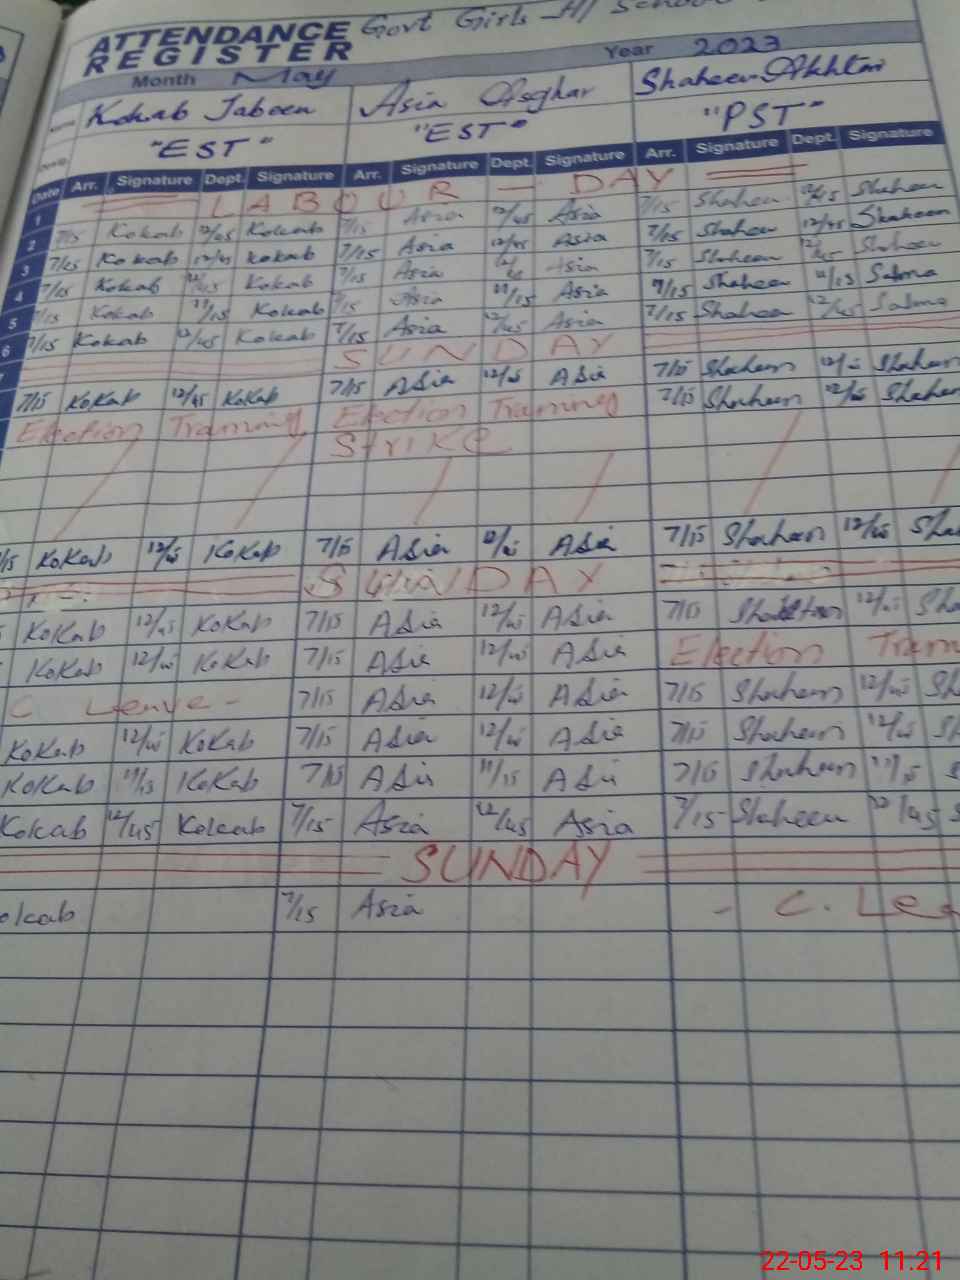 ATTENDANCE Govt Girls H/ School
REGISTER
Month May Year 2023
Name Kokab Jabeen Asia Asghar Shaheen Akhtar
"EST" "EST" "PST"
Date Arr. Signature Dept. Signature Arr. Signature Dept. Signature Arr. Signature Dept. Signature
1 LABOUR - DAY
2 7/15 Kokab 12/45 Kokab 7/15 Asia 12/45 Asia 7/15 Shaheen 12/45 Shaheen
3 7/15 Kokab 12/45 Kokab 7/15 Asia 12/45 Asia 7/15 Shaheen 12/45 Shaheen
4 7/15 Kokab 12/45 Kokab 7/15 Asia Asia 7/15 Shaheen 12/45 Shaheen
5 7/15 Kokab 11/15 Kokab 7/15 Asia 11/15 Asia 7/15 Shaheen 11/15 Salma
6 7/15 Kokab 12/45 Kokab 7/15 Asia 12/45 Asia 7/15 Shaheen 12/45 Salma
SUNDAY
7/15 KoKab 12/45 KoKab 7/15 ASia 12/45 ASia 7/15 Shaheen Shaheen
Election Training Election Training 7/15 Shaheen 12/45 Shaheen
Strike
/15 KoKab 12/45 KoKab 7/15 ASia 12/45 ASia 7/15 Shaheen 12/45 Sha
SUNDAY
KoKab 12/45 KoKab 7/15 ASia 12/45 ASia 7/15 12/45 Sha
KoKab 12/45 KoKab 7/15 ASia 12/45 ASia Election Train
C. Leave - 7/15 ASia 12/45 ASia 7/15 Shaheen 12/45 Sh
KoKab 12/45 KoKab 7/15 ASia 12/45 ASia 7/15 Shaheen 12/45 Sh
KoKab 11/15 KoKab 7/15 ASia 11/15 ASia 7/15 Shaheen 11/15 S
Kokab 12/45 Kokab 7/15 Asia 12/45 Asia 7/15 Shaheen 12/45 S
SUNDAY
okab 7/15 Asia - C. Lea
22-05-23 11.21